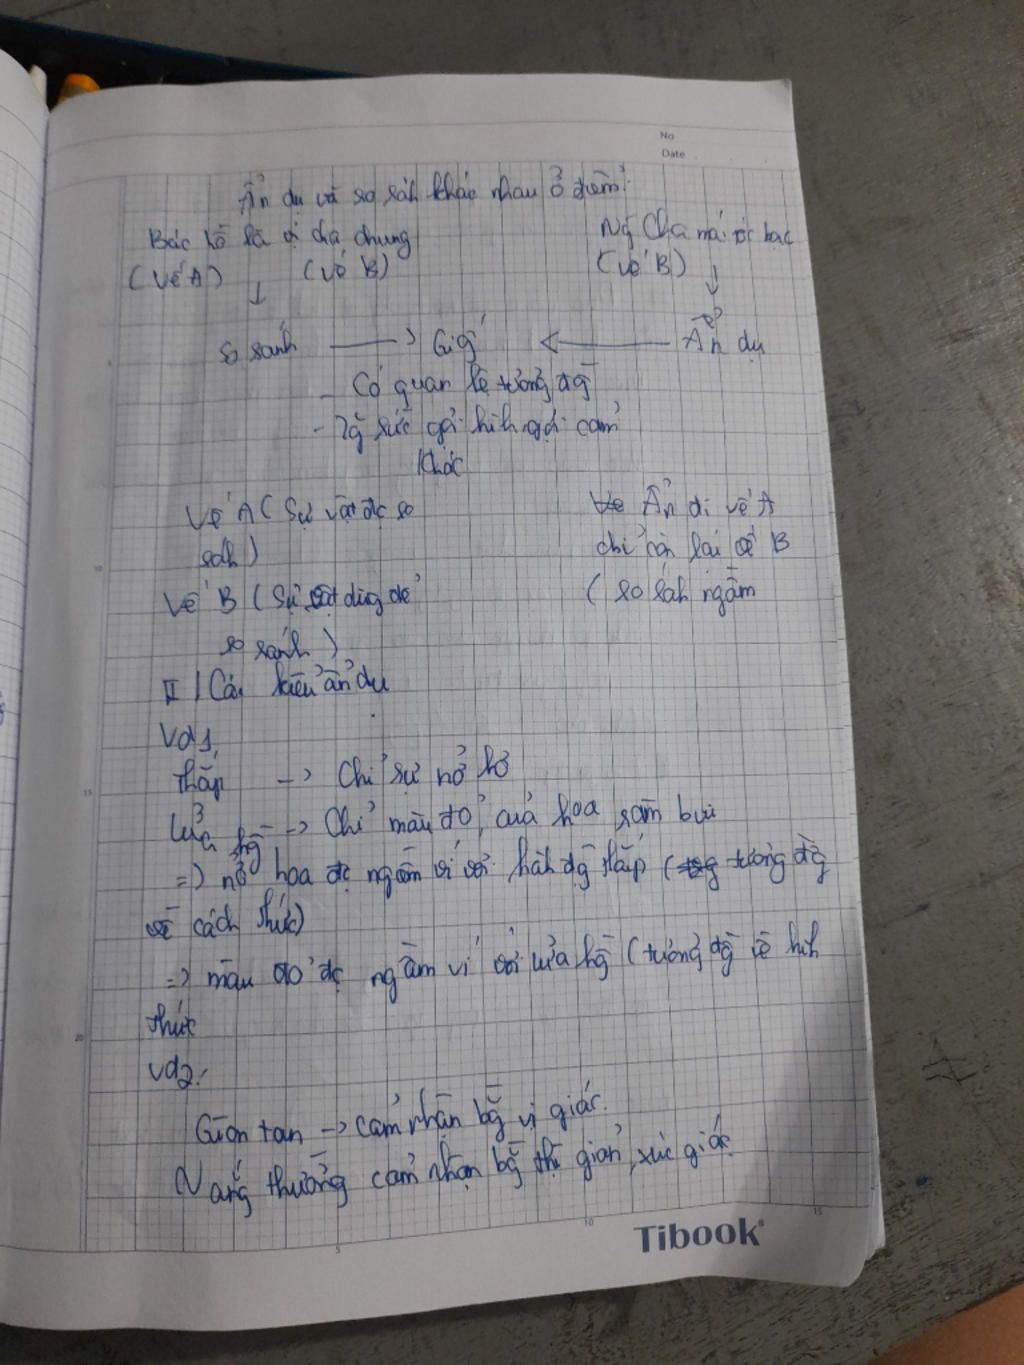 No
Date
Ẩn dụ và so sáh khác nhau ở điểm:
Bác Hồ là vị cha chung
Ng Cha mái tóc bạc
(Vế A) (Vế B)
(Vế B)
So sánh → Giố ← Ẩn dụ
- Có quan hệ tương đg
- Tg sức gợi hìh, gợi cảm
Khác
Vế A (Sự vật đc so
sáh)
Ẩn đi vế A
chỉ còn lại vế B
Vế B (Sự vật dùng để
so sánh)
(so sáh ngầm
II / Các kiểu ẩn dụ
Vd1,
thắp → Chỉ sự nở hở
lửa hg → Chỉ màu đỏ, của hoa râm bụt
=> nở hoa đc ngầm ví với hàh đg thắp (tương đg
về cách thức)
=> màu đỏ đc ngầm ví với lửa hg (tương đg về hìh
thức
Vd2:
Giòn tan → cảm nhận bg vị giác.
Nắng thường cảm nhận bg thị giản, xúc giác
10
15
20
5
10
15
Tibook